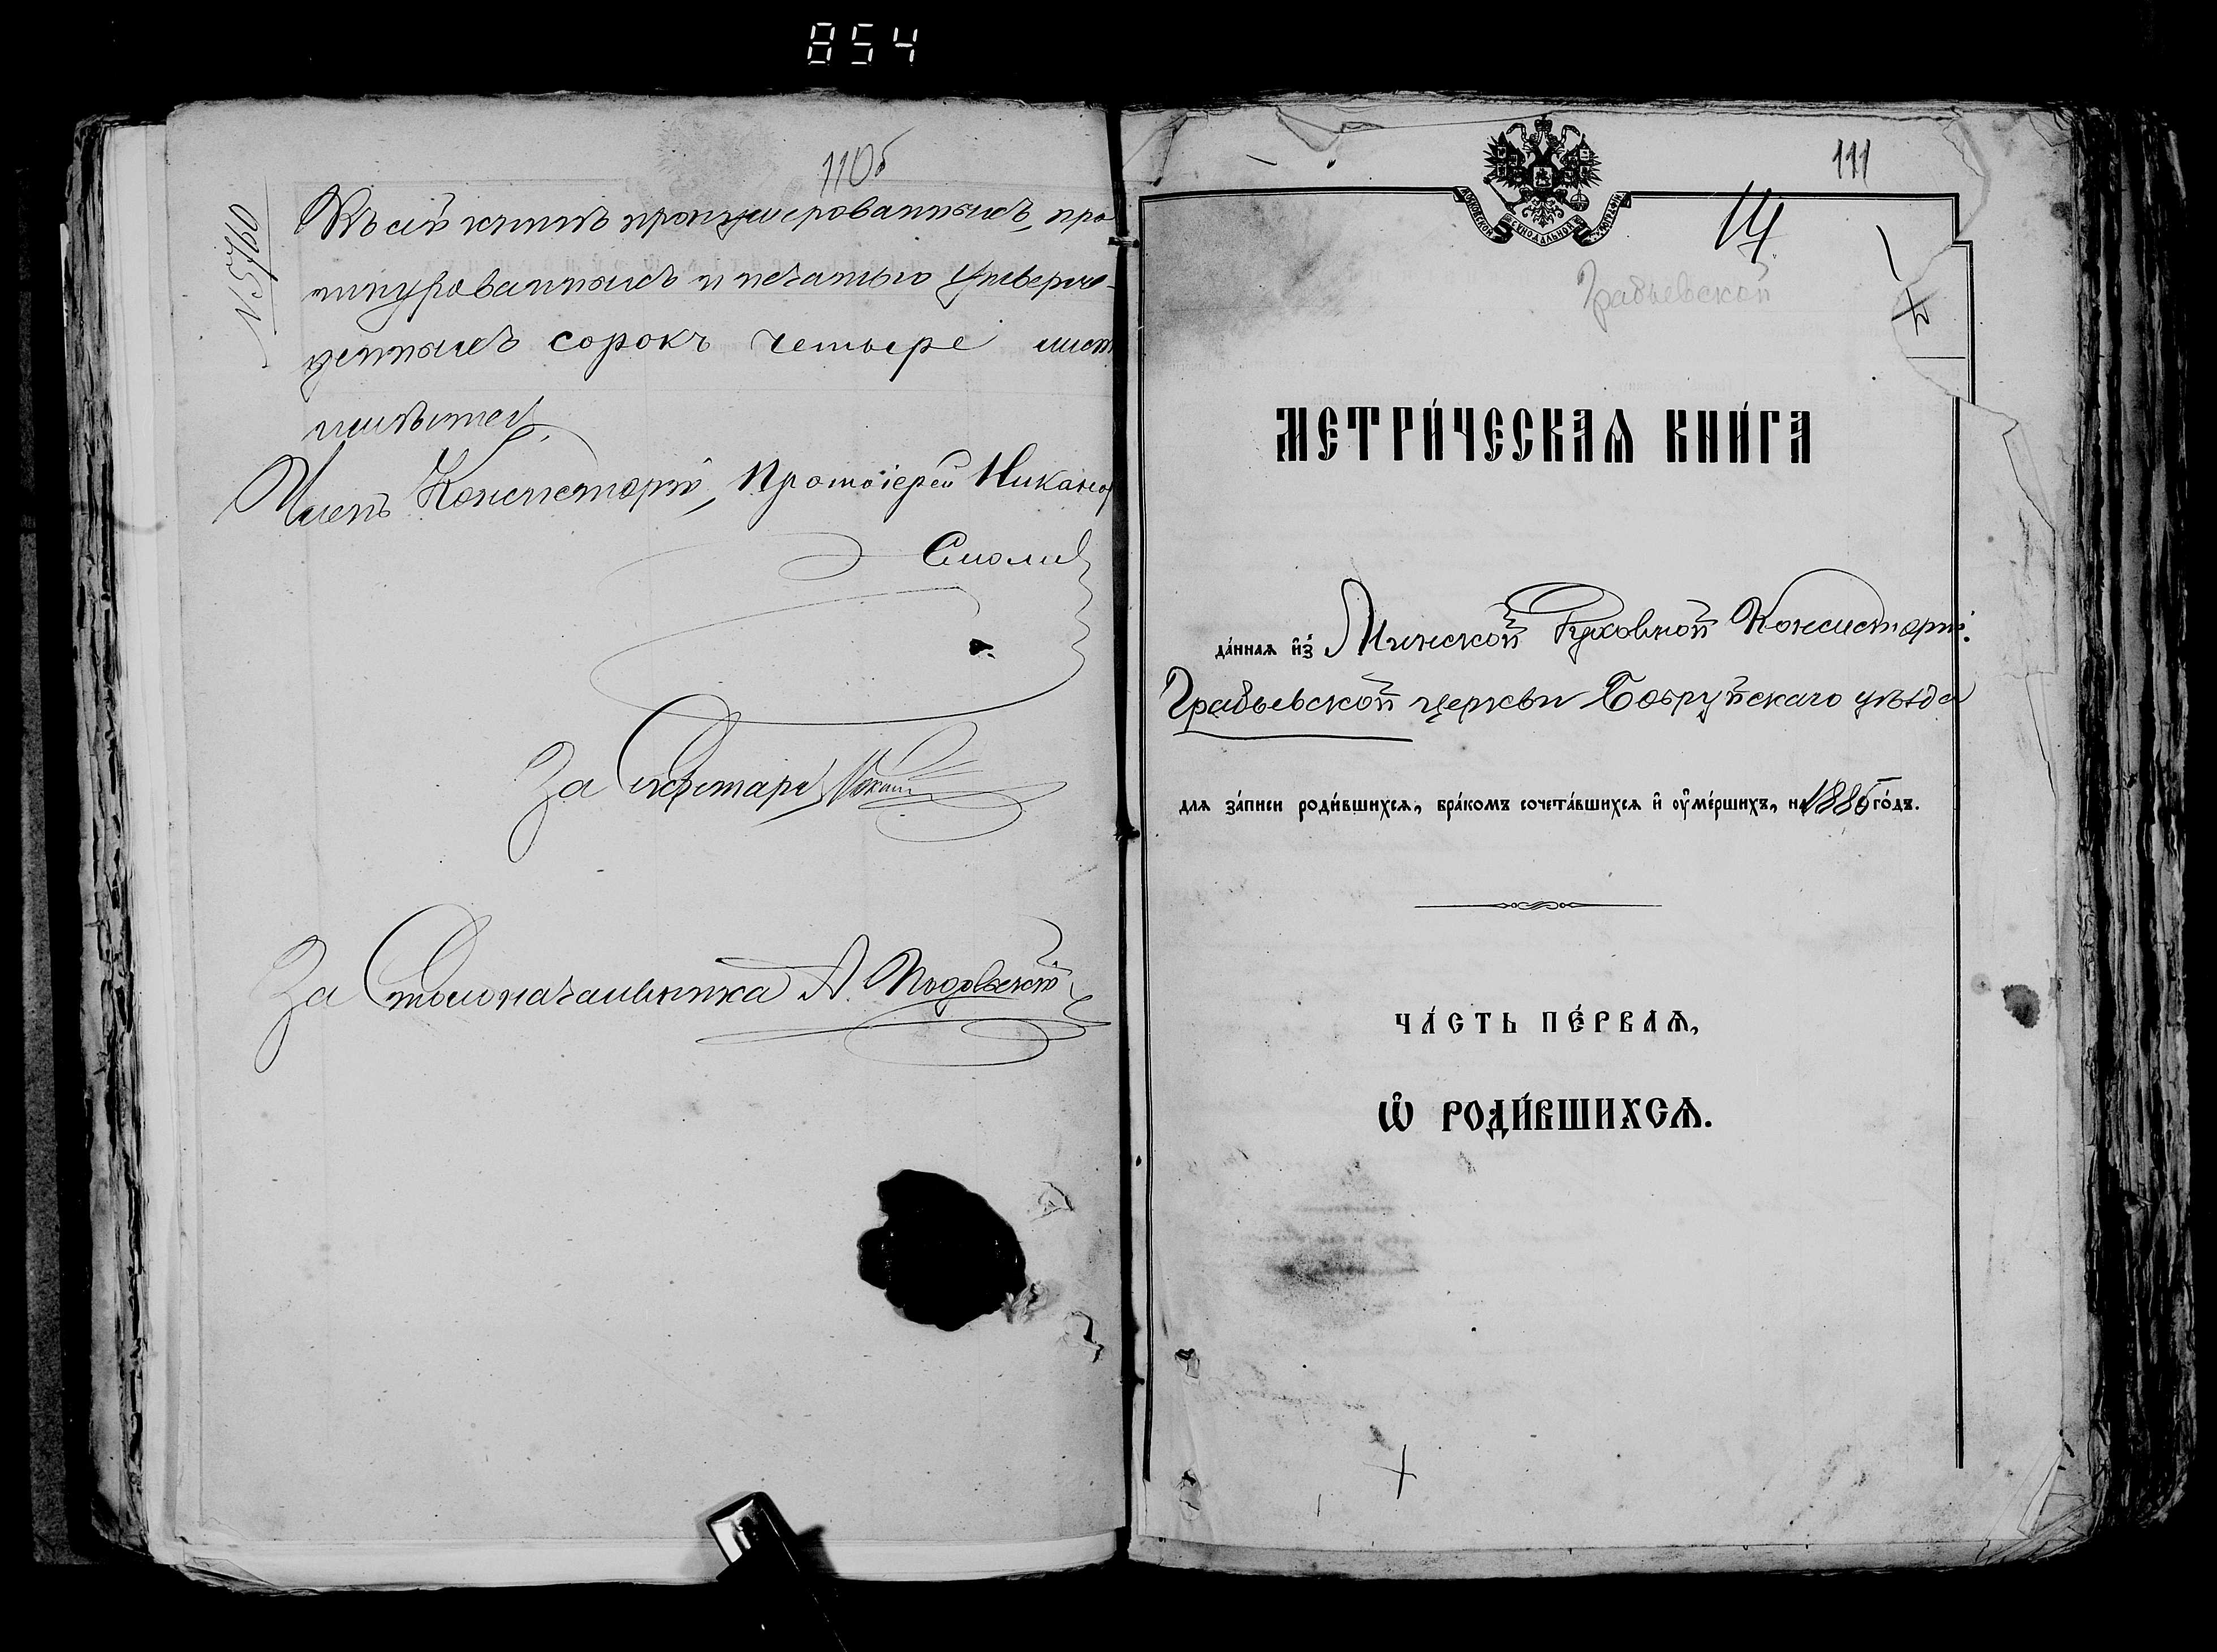 854
110б
№ 5760
Въ сей книгѣ пронумерованныхъ, про
шнурованныхъ и печатью утверж-
денныхъ сорокъ четыре лист
имѣется.
Членъ Консисторіи, Протоіерей Никанор
Смолич
За Секретаря
За Столоначальника А.
111
14
Грабьевской
МОСКОВСКОЙ СѴНОДАЛЬНОЙ ТИПОГРАФІИ
МЕТРИ́ЧЕСКАѦ КНИ́ГА
да́ннаѧ и҆з̾ Минской Духовной Консисторіи.
Грабьевской церкви Бобруйскаго уѣзда
для за́писи роди́вшихсѧ, бра́комъ сочета́вшихсѧ и҆ оу҆ме́ршихъ, на 1886 го́дъ.
ЧА́СТЬ ПЕ́РВАѦ,
Ѡ҆ РОДИ́ВШИХСѦ.